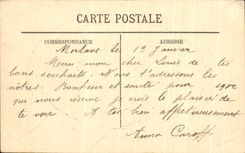 CARTE POSTALE
CORRESPONDANCE
ADRESSE
Morlaix le 13 Janvier
Merci mon cher Louis de tes
bons souhaits. Nous t'adressons les
nôtres. Bonheur et santé pour 1902
qui nous réserve je crois le plaisir de
te voir. A toi bien affectueusement
Anna